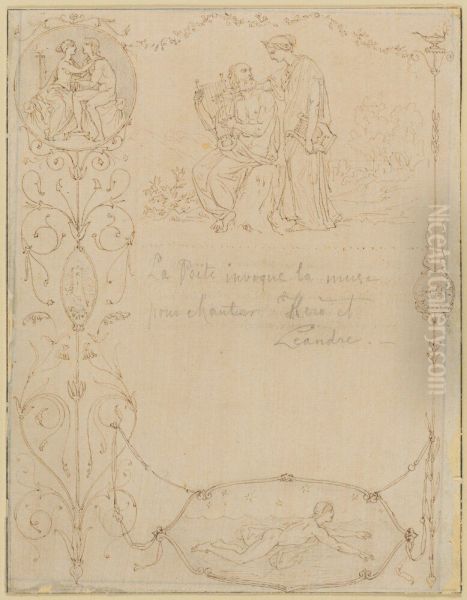 La Poëte invoque la muse
pour chanter Héro et
Léandre. —
NiceArtGallery.com